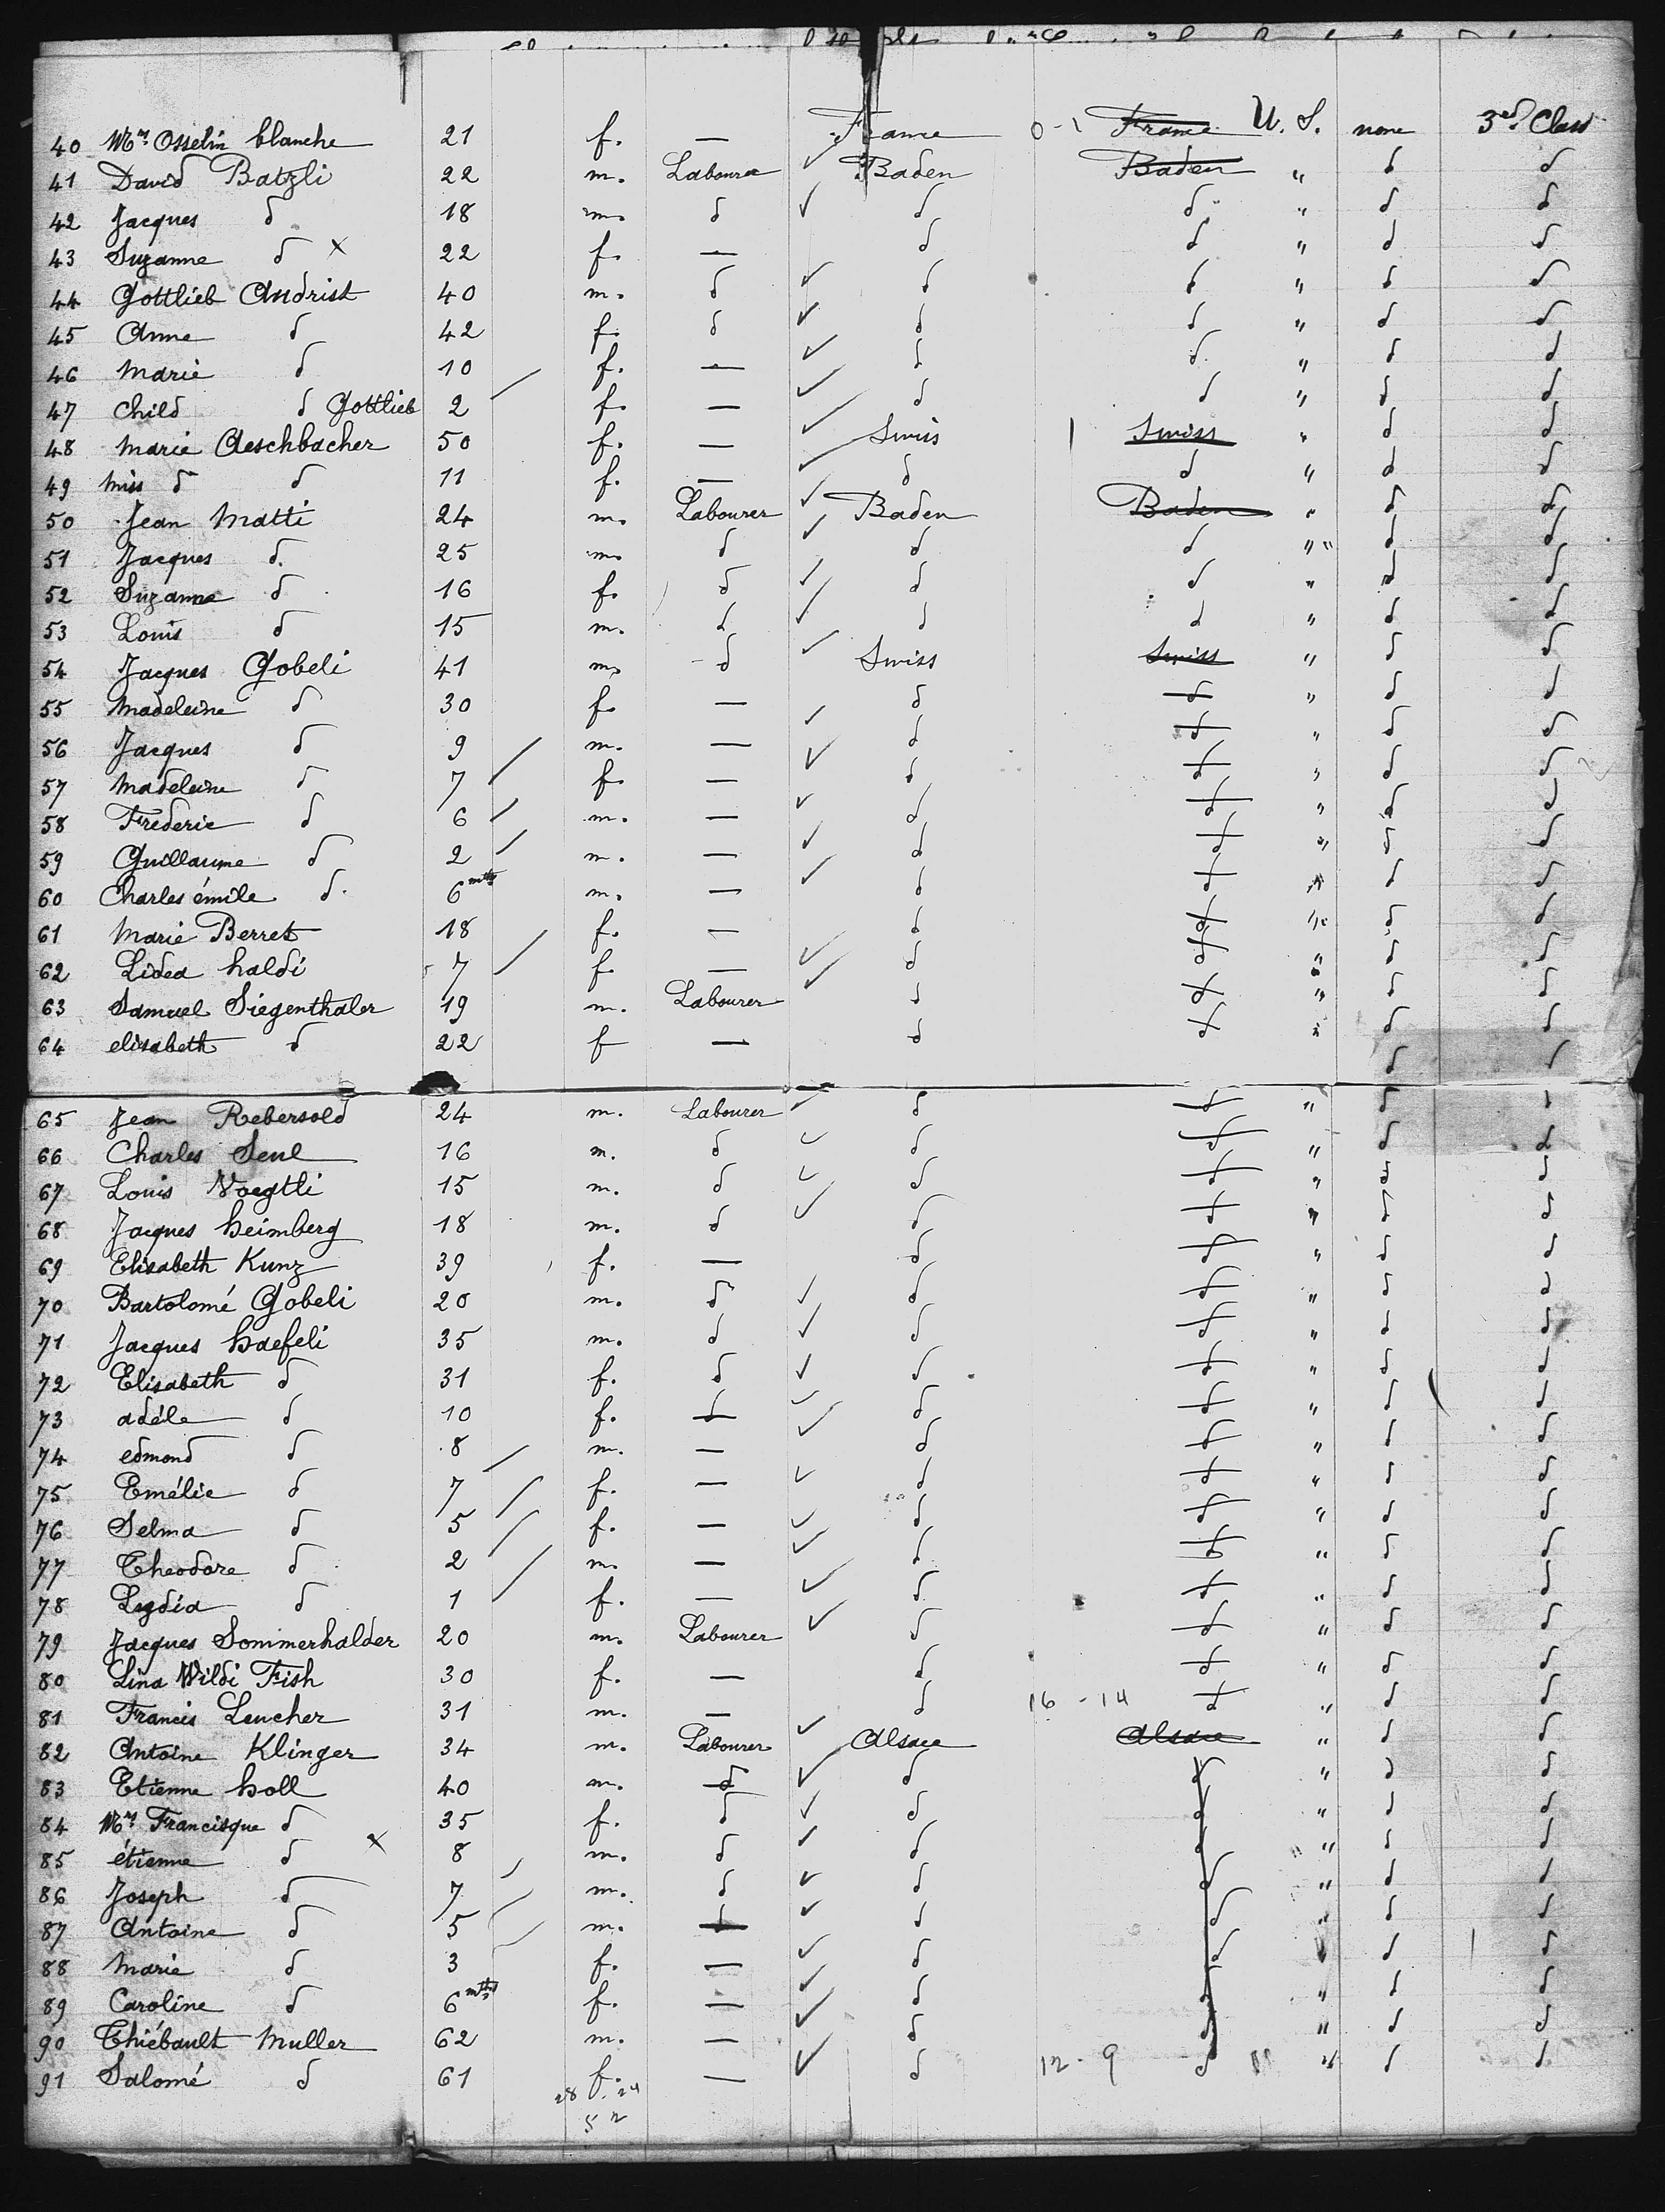 40 Mrs Osselin blanche 21 f. — France 0-1 France U. S. none 3rd Class
41 David Batzli 22 m. Labourer ✓ Baden Baden " d d
42 Jacques d 18 m. d ✓ d d " d d
43 Suzanne d x 22 f. — d d " d d
44 Gottlieb Andrist 40 m. d ✓ d d " d d
45 Anne d 42 f. d ✓ d d " d d
46 Marie d 10 f. — ✓ d d " d d
47 Child d Gottlieb 2 / f. — ✓ d d " d d
48 Marie Aeschbacher 50 f. — ✓ Swiss 1 Swiss " d d
49 Miss d d 11 f. — ✓ d d " d d
50 Jean Matti 24 m. Labourer ✓ Baden Baden " d d
51 Jacques d. 25 m. d ✓ d d " d d
52 Suzanne d 16 f. d ✓ d d " d d
53 Louis d 15 m. d ✓ d d " d d
54 Jacques Gobeli 41 m. d ✓ Swiss Swiss " d d
55 Madeleine d 30 f. — d d " d d
56 Jacques d 9 / m. — ✓ d d " d d
57 Madeleine d 7 / f. — ✓ d d " d d
58 Frederic d 6 / m. — ✓ d d " d d
59 Guillaume d 2 / m. — ✓ d d " d d
60 Charles émile d. 6 mths m. — ✓ d d " d d
61 Marie Berret 18 f. — d d " d d
62 Lidea haldi 7 / f. — ✓ d d " d d
63 Samuel Siegenthaler 19 m. Labourer ✓ d d " d d
64 elisabeth d 22 f — d d " d d
d d
65 Jean Rebersold 24 m. Labourer ✓ d d " d d
66 Charles Senl 16 m. d ✓ d d " d d
67 Louis Voegtli 15 m. d ✓ d d " d d
68 Jacques heimberg 18 m. d ✓ d d " d d
69 Elisabeth Kunz 39 f. — d d " d d
70 Bartolomé Gobeli 20 m. d ✓ d d " d d
71 Jacques haefeli 35 m. d ✓ d d " d d
72 Elisabeth d 31 f. d ✓ d d " d d
73 adéle d 10 f. d ✓ d d " d d
74 edmond d 8 / m. — ✓ d d " d d
75 Emélie d 7 / f. — ✓ d d " d d
76 Selma d 5 / f. — ✓ d d " d d
77 Theodore d 2 / m. — ✓ d d " d d
78 Lydia d 1 f. — ✓ d d " d d
79 Jacques Sommerhalder 20 m. Labourer ✓ d d " d d
80 Lina Wildi Fish 30 f. — d d " d d
81 Francis Leucher 31 m. — d 16 - 14 d " d d
82 Antoine Klinger 34 m. Labourer ✓ Alsace Alsace " d d
83 Etienne holl 40 m. d ✓ d d " d d
84 Mrs Francisque d 35 f. d ✓ d d " d d
85 étienne d x 8 / m. d ✓ d d " d d
86 Joseph d 7 / m. d ✓ d d " d d
87 Antoine d 5 / m. d ✓ d d " d d
88 Marie d 3 f. — ✓ d d " d d
89 Caroline d 6 mths f. — ✓ d d " d d
90 Thiébault Muller 62 m. — ✓ d d " d d
91 Salomé d 61 f. — ✓ d 12 - 9 d " d d
28 24
52